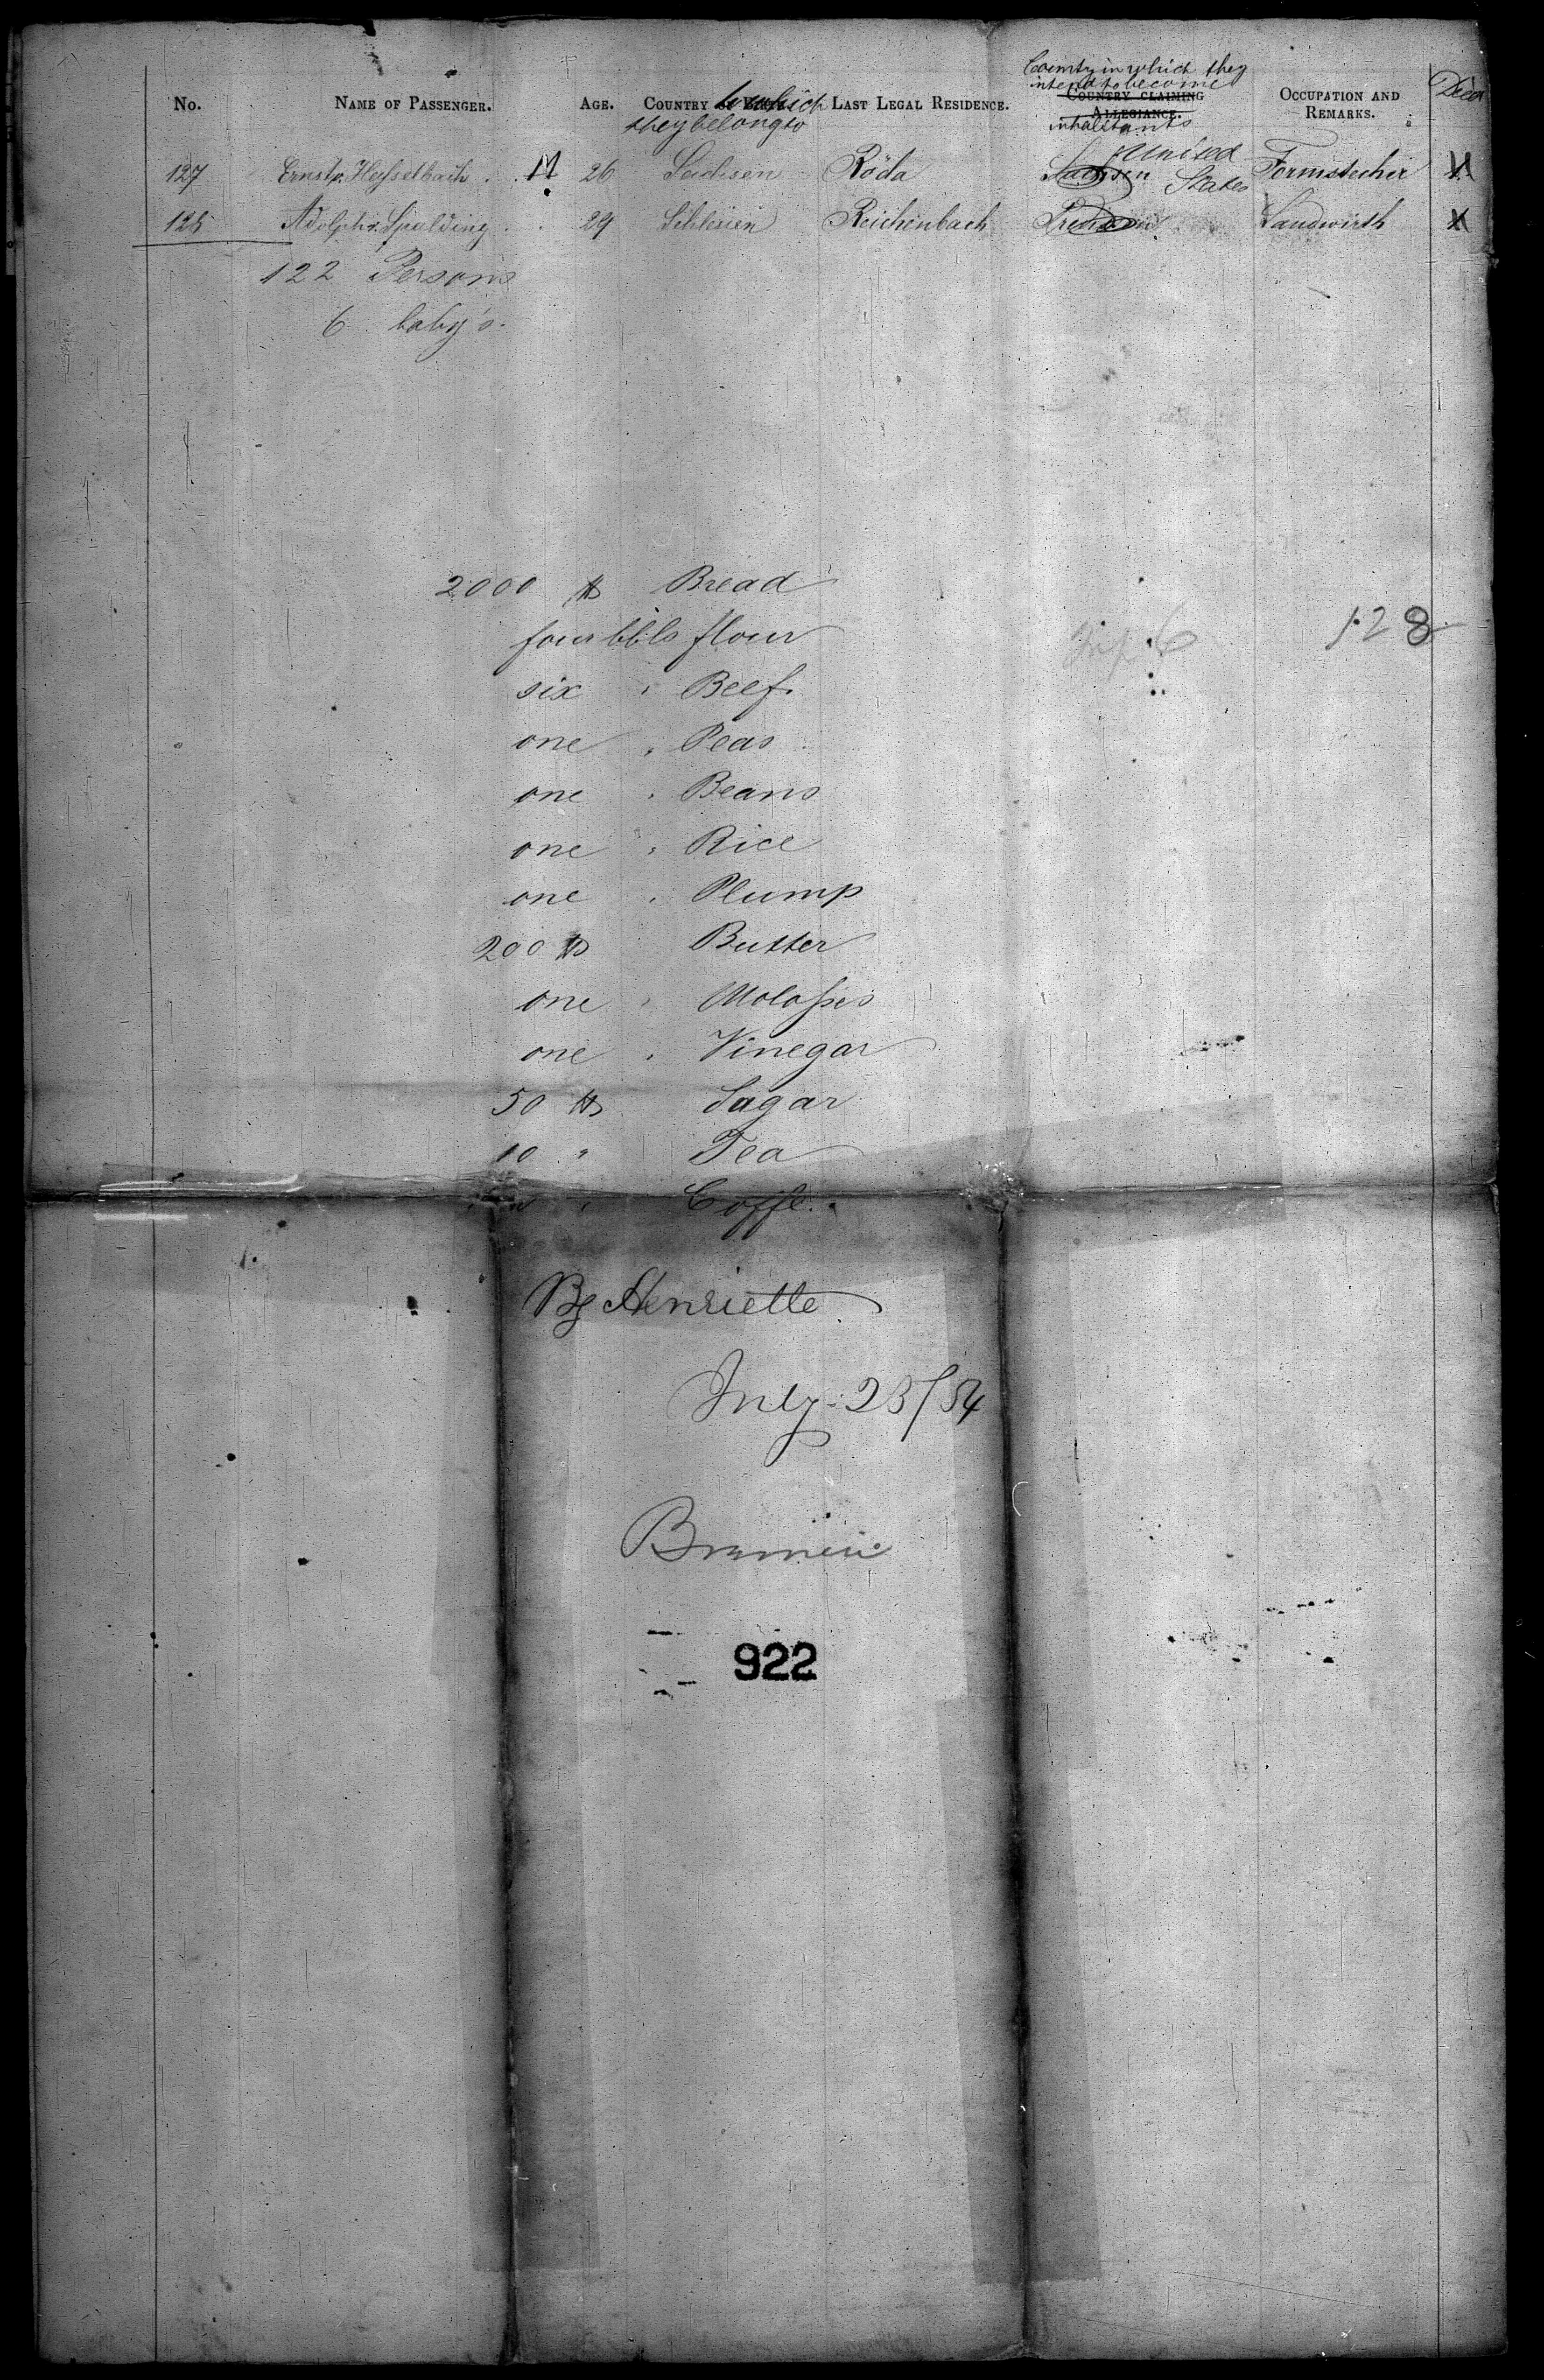 County in which they
intend to become
No. NAME OF PASSENGER. AGE. COUNTRY to which LAST LEGAL RESIDENCE. COUNTRY CLAIMING ALLEGIANCE. OCCUPATION AND REMARKS.
they belong to inhabitants
United
127 Ernst Heysselbach M 26 Sachsen Röda Sachsen States Formstecher
128 Adolph Spulding 29 Schlesien Reichenbach Landwirth
122 Persons
6 baby's.
2000 lb Bread
four bbls flour
128
Inf 6
six " Beef.
one " Peas
one " Beans
one " Rice
one " Plump
200 lb Butter
one " Molasses
one " Vinegar
50 lb Sugar
10 " Tea
" Coffe.
Bg Henriette
July 23/54
Bremen
922